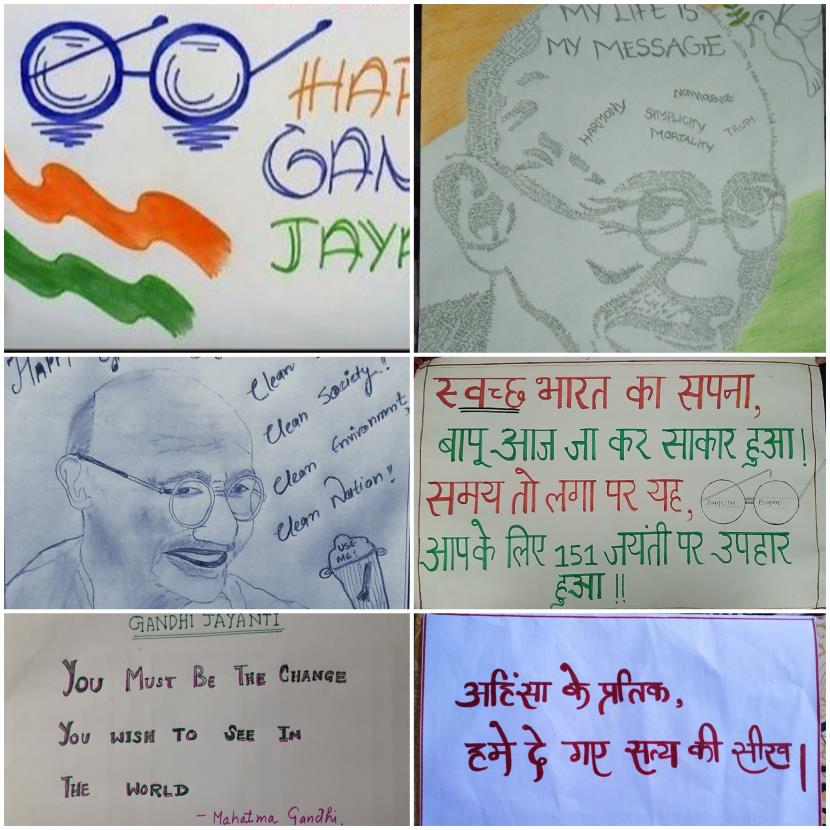 HAP
GAN
JAYA
MY LIFE IS
MY MESSAGE
NONVIOLENCE
HARMONY
SIMPLICITY
TRUTH
MORTALITY
HAPPY
Clean
Clean Society!!
Clean Environment,
Clean Nation!!
USE
ME!
स्वच्छ भारत का सपना,
बापू आज जा कर साकार हुआ!
समय तो लगा पर यह,
आपके लिए 151 जयंती पर उपहार
हुआ!!
GANDHI JAYANTI
YOU MUST BE THE CHANGE
YOU WISH TO SEE IN
THE WORLD
- Mahatma Gandhi.
अहिंसा के प्रतिक,
हमे दे गए सत्य की सीख।